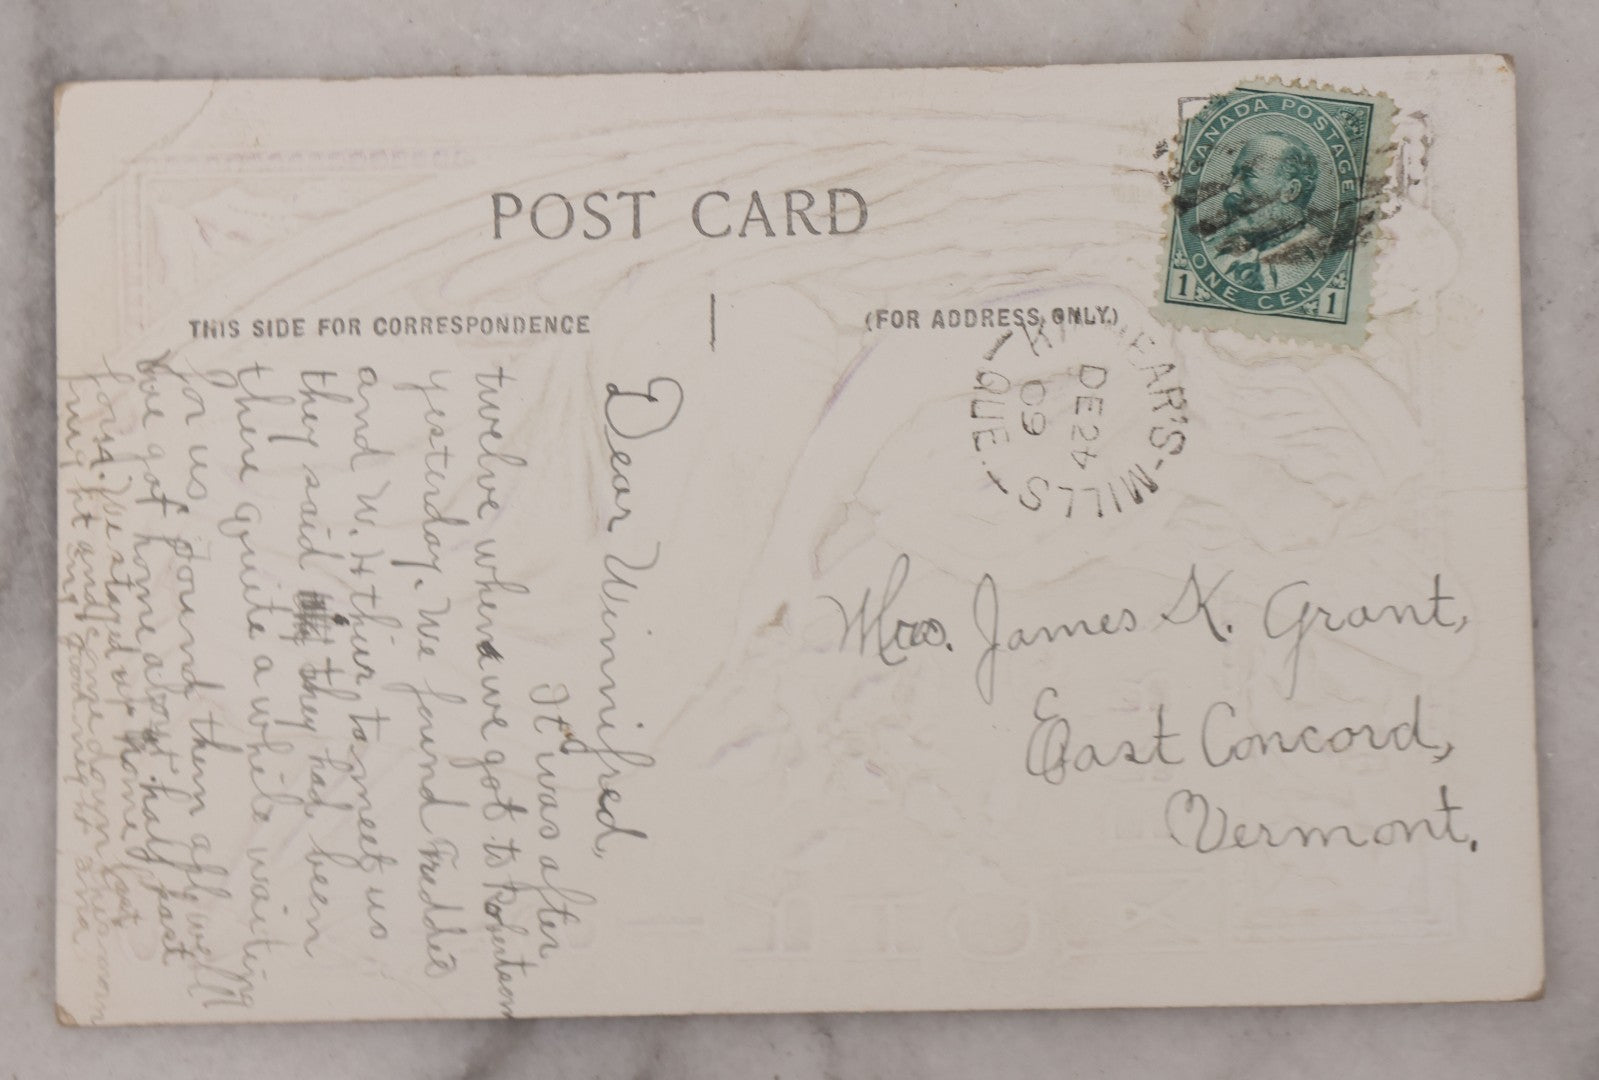 POST CARD
THIS SIDE FOR CORRESPONDENCE
(FOR ADDRESS ONLY.)
CANADA POSTAGE
1 ONE CENT 1
EAR'S-MILLS
QUE.
DE 24
09
Mrs. James K. Grant,
East Concord,
Vermont.
Dear Winnifred,
It was after
twelve when we got to Robertson
yesterday. We found Freddie
and W. H their to meet us
they said they had been
there quite a while waiting
for us found them all well
We got home about half past
four. We stayed up home last
night and came down this morn